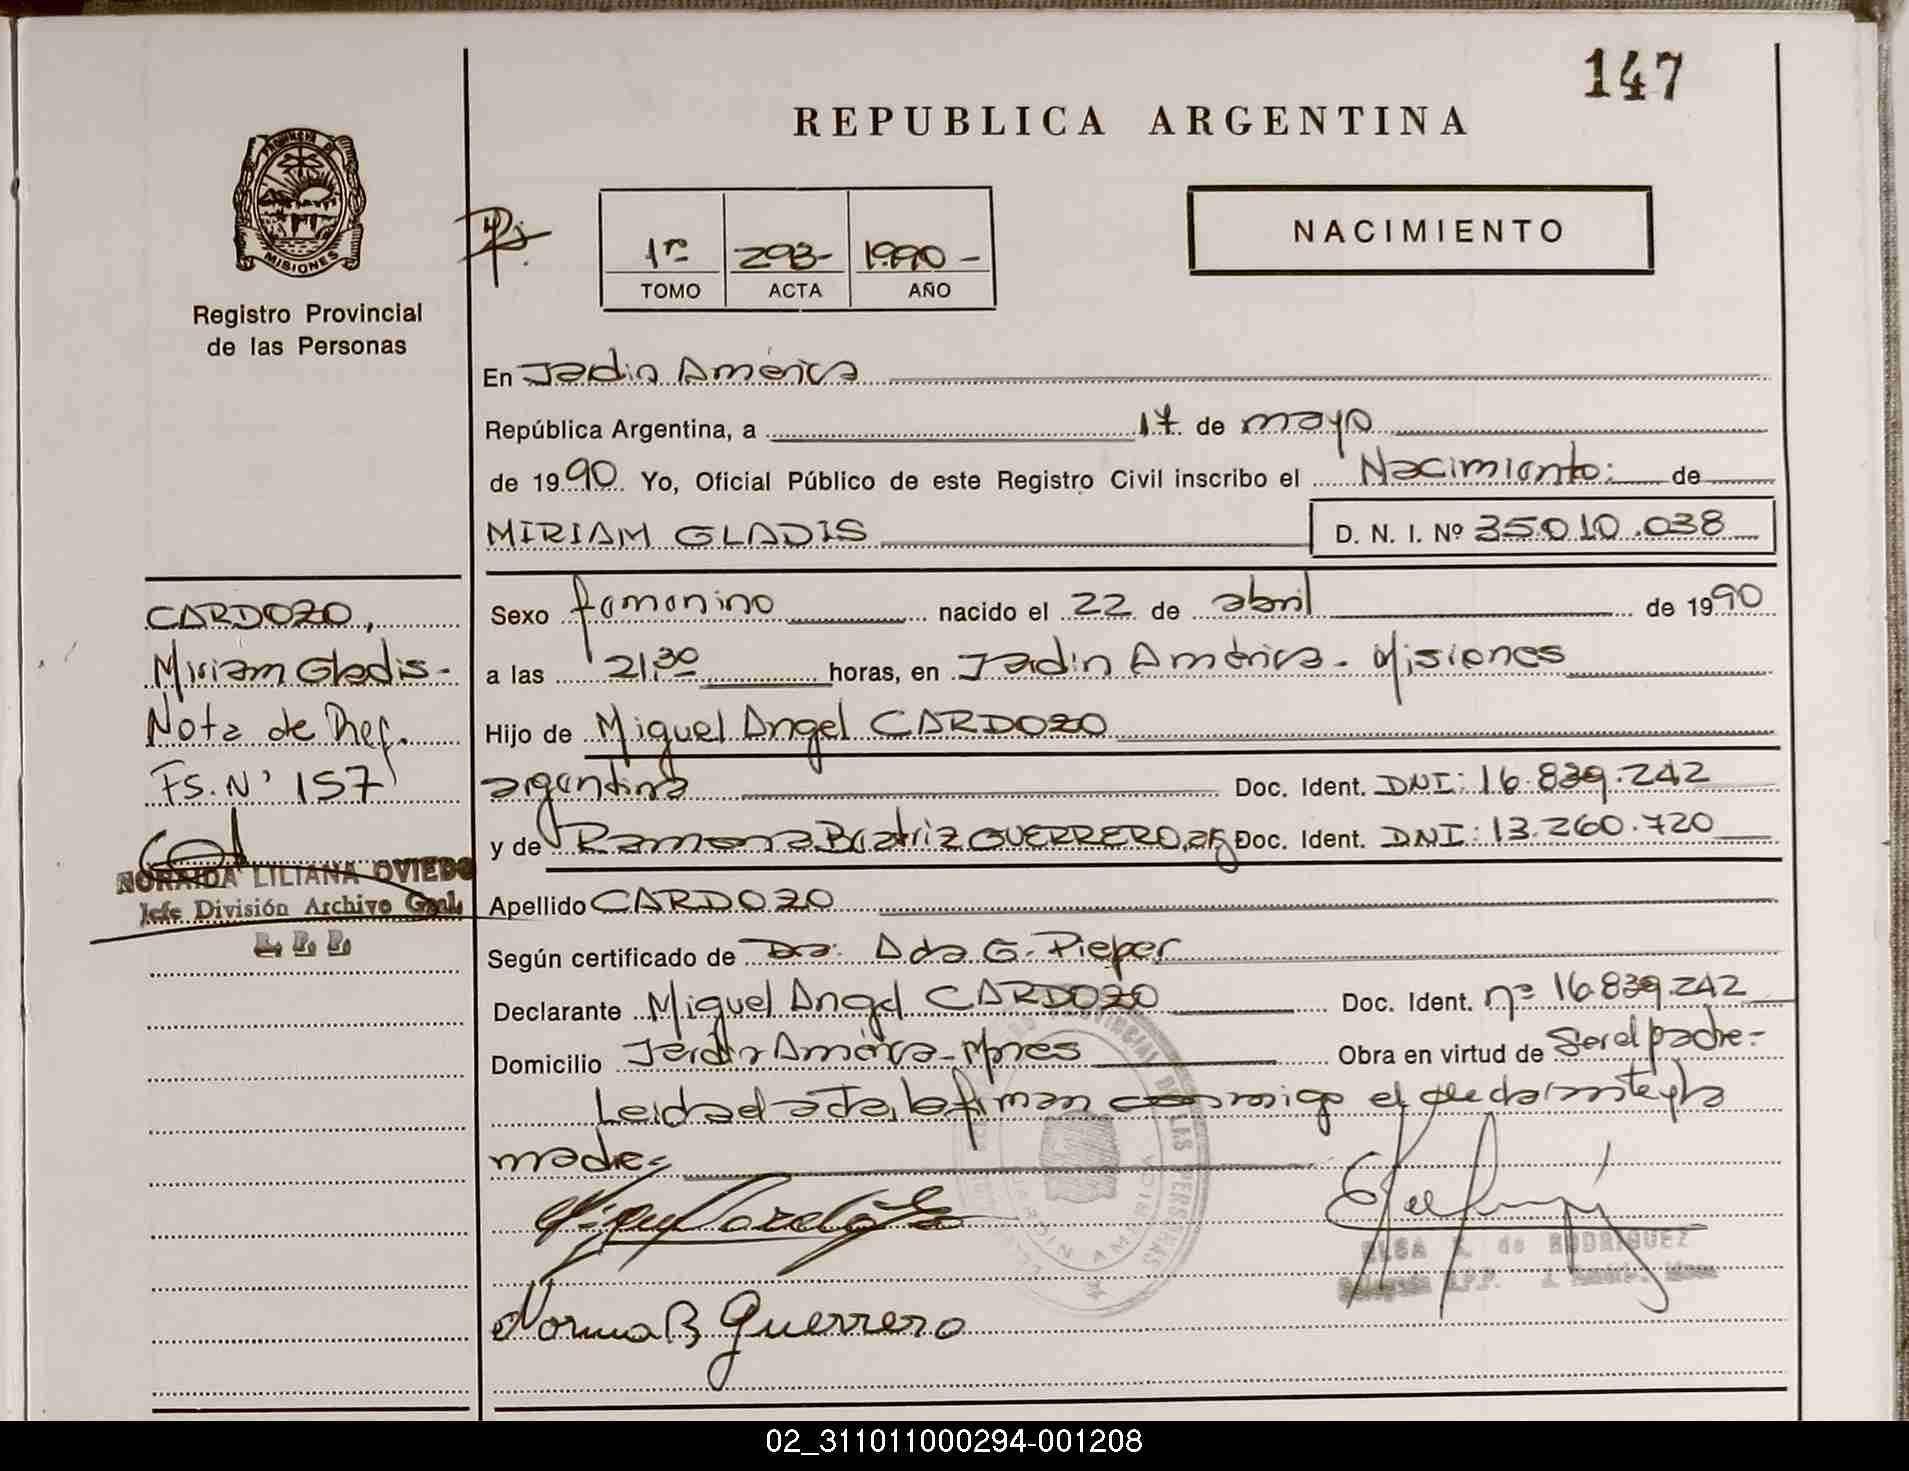 147
REPUBLICA ARGENTINA
PROVINCIA DE
MISIONES
Registro Provincial
de las Personas
NACIMIENTO
1rº 293- 1990-
TOMO ACTA AÑO
En Jardin América
República Argentina, a 17 de mayo
de 1990 Yo, Oficial Público de este Registro Civil inscribo el Nacimiento: de
MIRIAM GLADIS D. N. I. Nº 35.010.038
CARDOZO,
Miriam Gladis-
Nota de Ref.
FS. Nº 157
NORAIDA LILIANA OVIEDO
Jefe División Archivo Gral.
R. P. P.
Sexo femenino nacido el 22 de abril de 1990
a las 21,30 horas, en Jardin América - Misiones
Hijo de Miguel Angel CARDOZO
argentina Doc. Ident. DNI: 16.839.242
y de Ramona Beatriz GUERRERO, arg Doc. Ident. DNI: 13.260.720
Apellido CARDOZO
Según certificado de Dra. Ada G. Pieper
Declarante Miguel Angel CARDOZO Doc. Ident. nº 16.839.242
Domicilio Jardin América - Mnes Obra en virtud de Ser el padre-
Leida el acta, la firman conmigo el declarante y la
madre-
Norma B Guerrero
ELSA de RODRIGUEZ
02_311011000294-001208